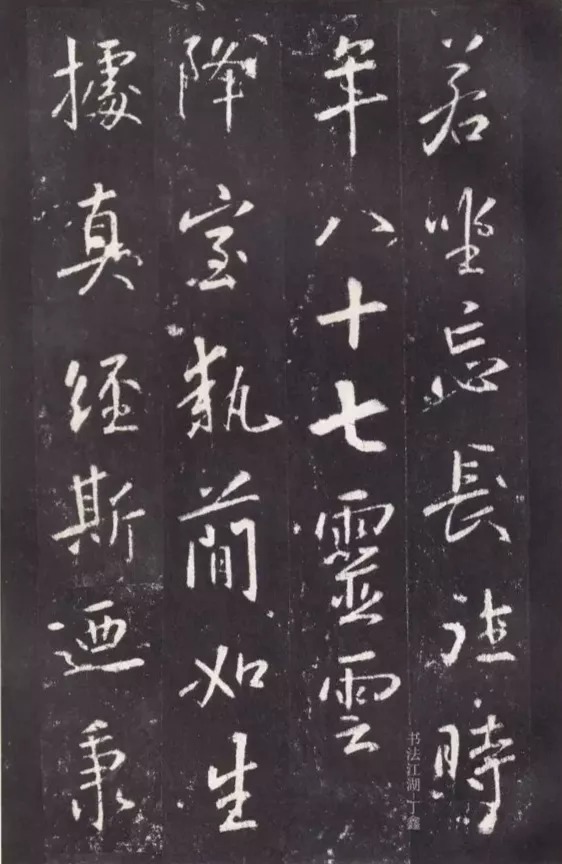 若坐忘長往時
年八十七靈雲
降室執蕳如生
據真經斯迺秉
书法江湖 丁鑫